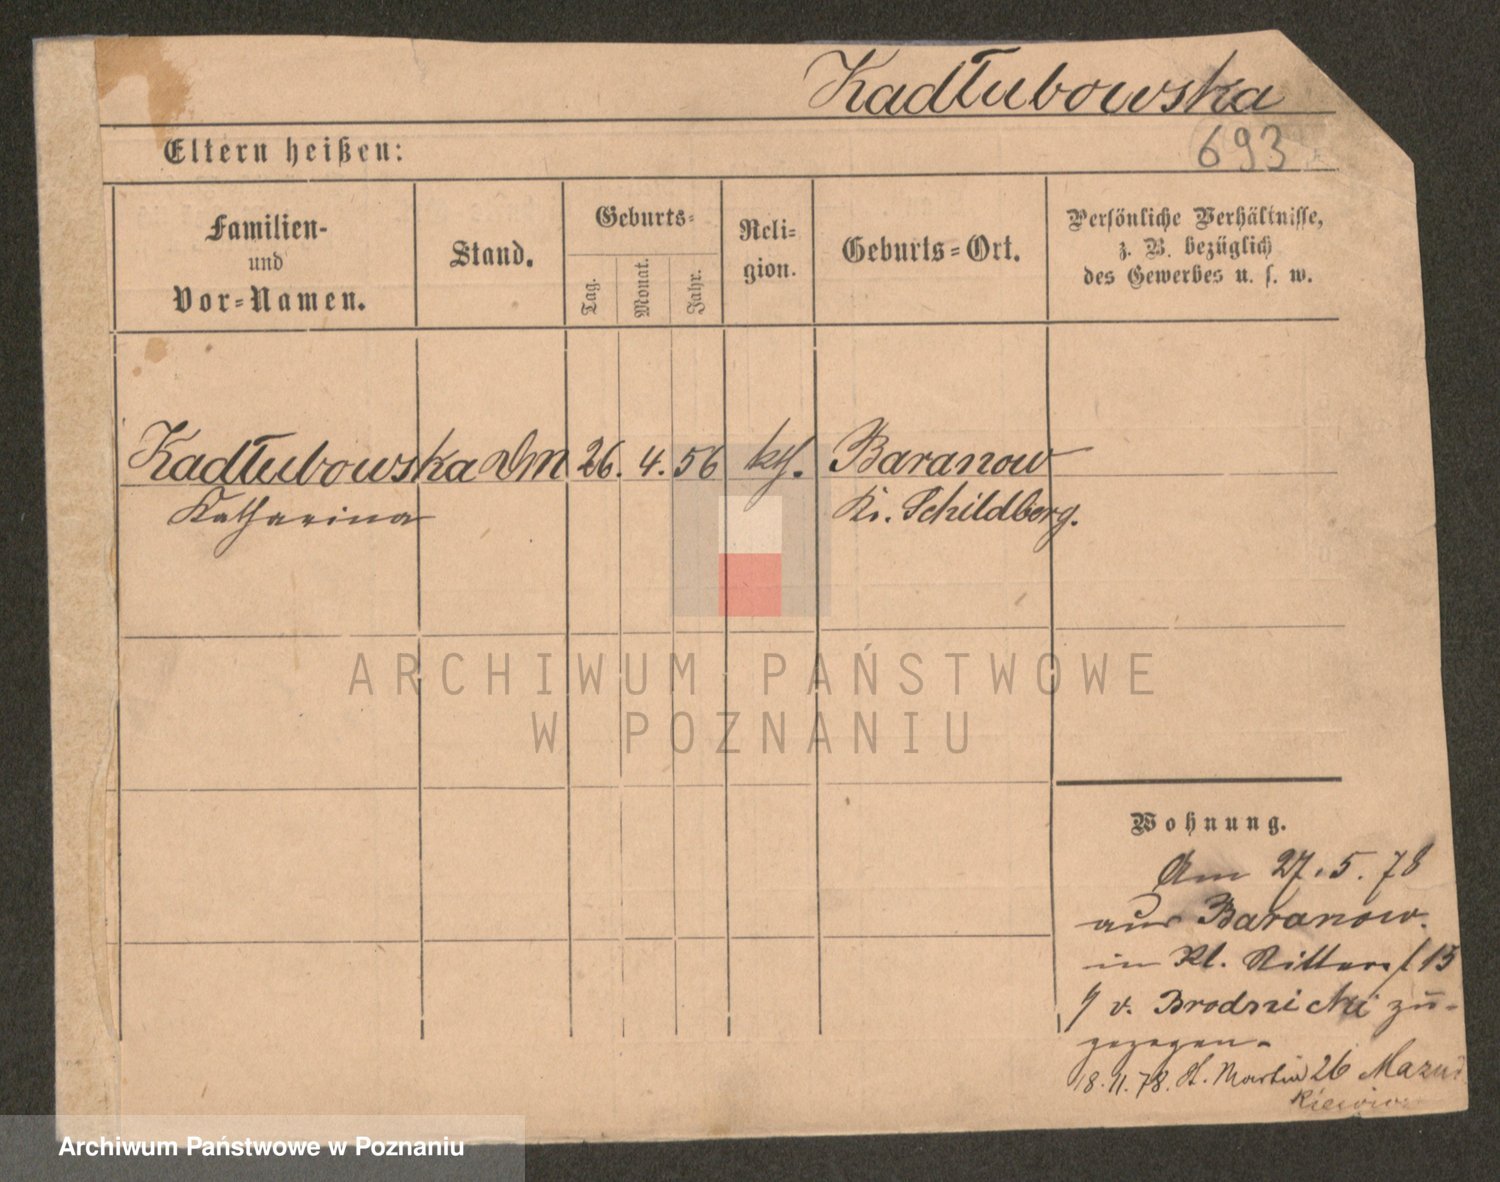 Kadłubowska
693
Eltern heißen:
Familien-
und
Vor-Namen.
Stand.
Geburts-
Tag.
Monat.
Jahr.
Reli-
gion.
Geburts-Ort.
Persönliche Verhältnisse,
z. B. bezüglich
des Gewerbes u. s. w.
Kadłubowska DM 26. 4. 56 kth. Baranow
Katharina Kr. Schildberg.
ARCHIWUM PAŃSTWOWE
W POZNANIU
Wohnung.
Am 27.5.78
aus Baranow.
in Kl. Ritterst 15
v. Brodnicki zu-
gezogen.
18.11.78. St. Martin 26 Mazur
kiewicz
Archiwum Państwowe w Poznaniu